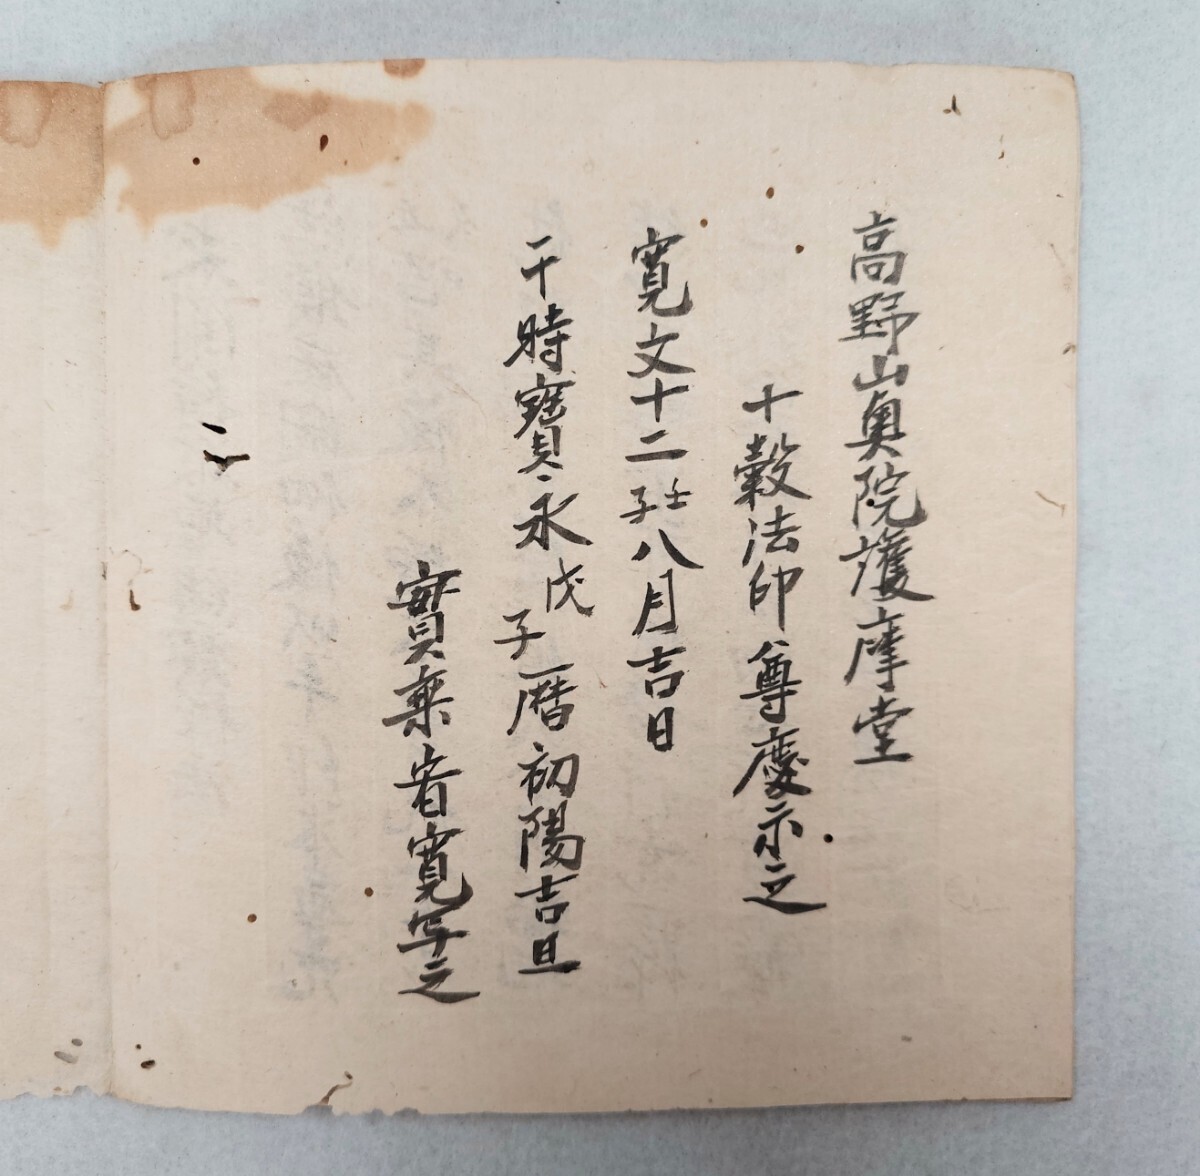 高野山奥院護摩堂
十穀法印尊慶示之
寛文十二壬子八月吉日
于時寳永戊子暦初陽吉旦
實乗省寛写之